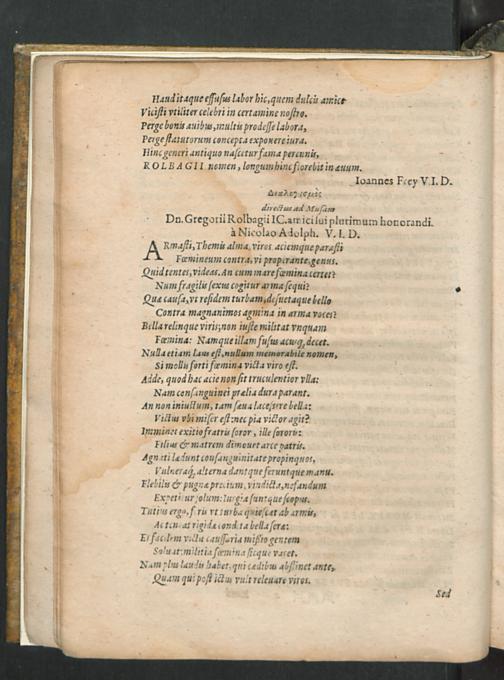 Haud itaque effusus labor hic, quem dulcis amice
Vicisti vtiliter celebri in certamine nostro.
Perge bonis auibus, multis prodesse labora,
Perge statutorum concepta exponere iura.
Hinc generi antiquo nascetur fama perennis,
ROLBAGII nomen, longum hinc florebit in æuum.
Ioannes Frey V.I.D.
Διαλογισμὸς
directus ad Musam
Dn. Gregorii Rolbagii IC. amici sui plurimum honorandi.
à Nicolao Adolph. V. I. D.
ARmasti, Themis alma, viros aciemque parasti
Fœmineum contra, vi properante, genus.
Quid tentes, videas. An cum mare fœmina certet?
Num fragilis sexus cogitur arma sequi?
Qua causa, vt residem turbam, desuetaque bello
Contra magnanimos agmina in arma voces?
Bella relinque viris; non iuste militat vnquam
Fœmina: Namque illam fusus acusq; decet.
Nulla etiam laus est, nullum memorabile nomen,
Si mollis forti fœmina victa viro est.
Adde, quod hac acie non sit truculentior vlla:
Nam consanguinei prælia dura parant.
An non iniustum, tam sæua lacessere bella:
Victus vbi miser est: nec pia victor agit?
Imminet exitio fratris soror, ille sororis:
Filius & matrem dimouet arce patris.
Agnati lædunt consanguinitate propinquos,
Vulneraq; alterna dantque feruntque manu.
Flebilis & pugnæ precium, vindicta, nefandum
Expetitur solum: iurgia suntque scopus.
Tutius ergo, foris vt turba quiescat ab armis,
Ac teneat rigida condita bella sera:
Et facilem victu caussaria missio gentem
Soluat: militia fœmina sicque vacet.
Nam plus laudis habet, qui cædibus abstinet ante,
Quam qui post ictus vult releuare viros.
Sed